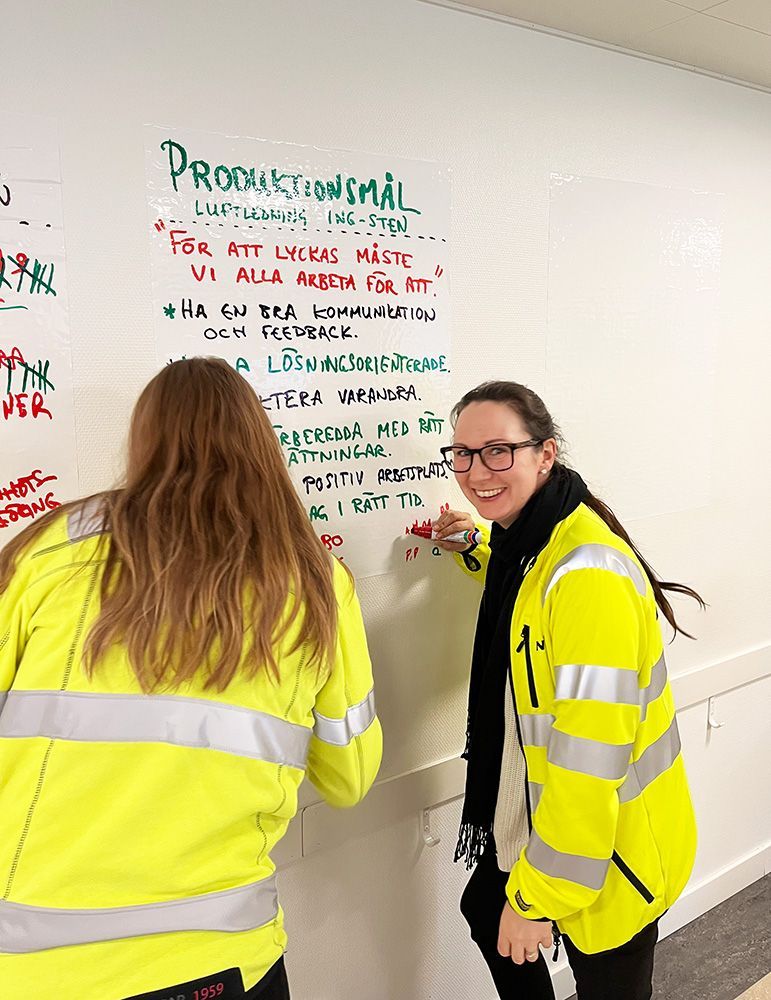 PRODUKTIONSMÅL
LUFTLEDNING ING-STEN
"FÖR ATT LYCKAS MÅSTE
VI ALLA ARBETA FÖR ATT."
*HA EN BRA KOMMUNIKATION
OCH FEEDBACK.
A LÖSNINGSORIENTERADE.
KTERA VARANDRA.
RBEREDDA MED RÄTT
ÄTTNINGAR.
POSITIV ARBETSPLATS.
AG I RÄTT TID.
BO
P.P
RA
NER
N
1959